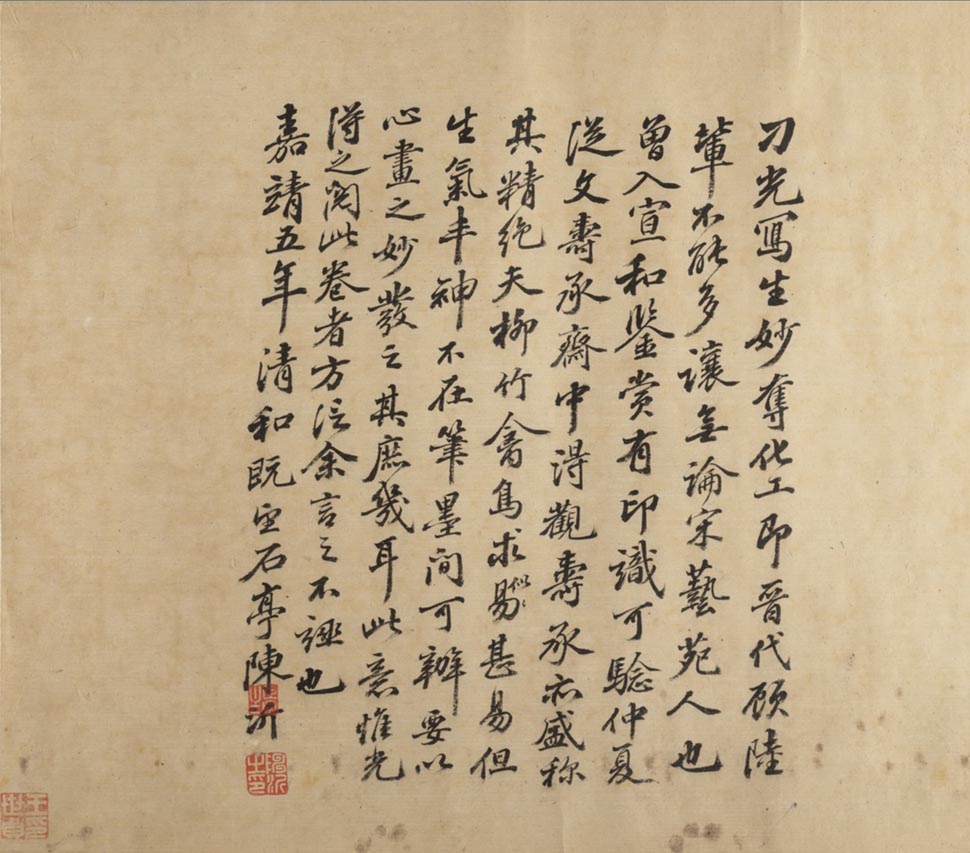 刁光寫生妙奪化工即晋代顾陸
輩不能多讓無論宋藝苑人也
曾入宣和鉴赏有印識可驗仲夏
從文壽承齋中得觀壽承亦盛称
其精绝夫柳竹禽鳥求似易甚易但
生氣丰神不在筆墨间可辦要以
心畫之妙發之其庶幾耳此意惟光
得之阅此卷者方信余言之不誣也
嘉靖五年清和既望石亭陳沂
陳沂之印